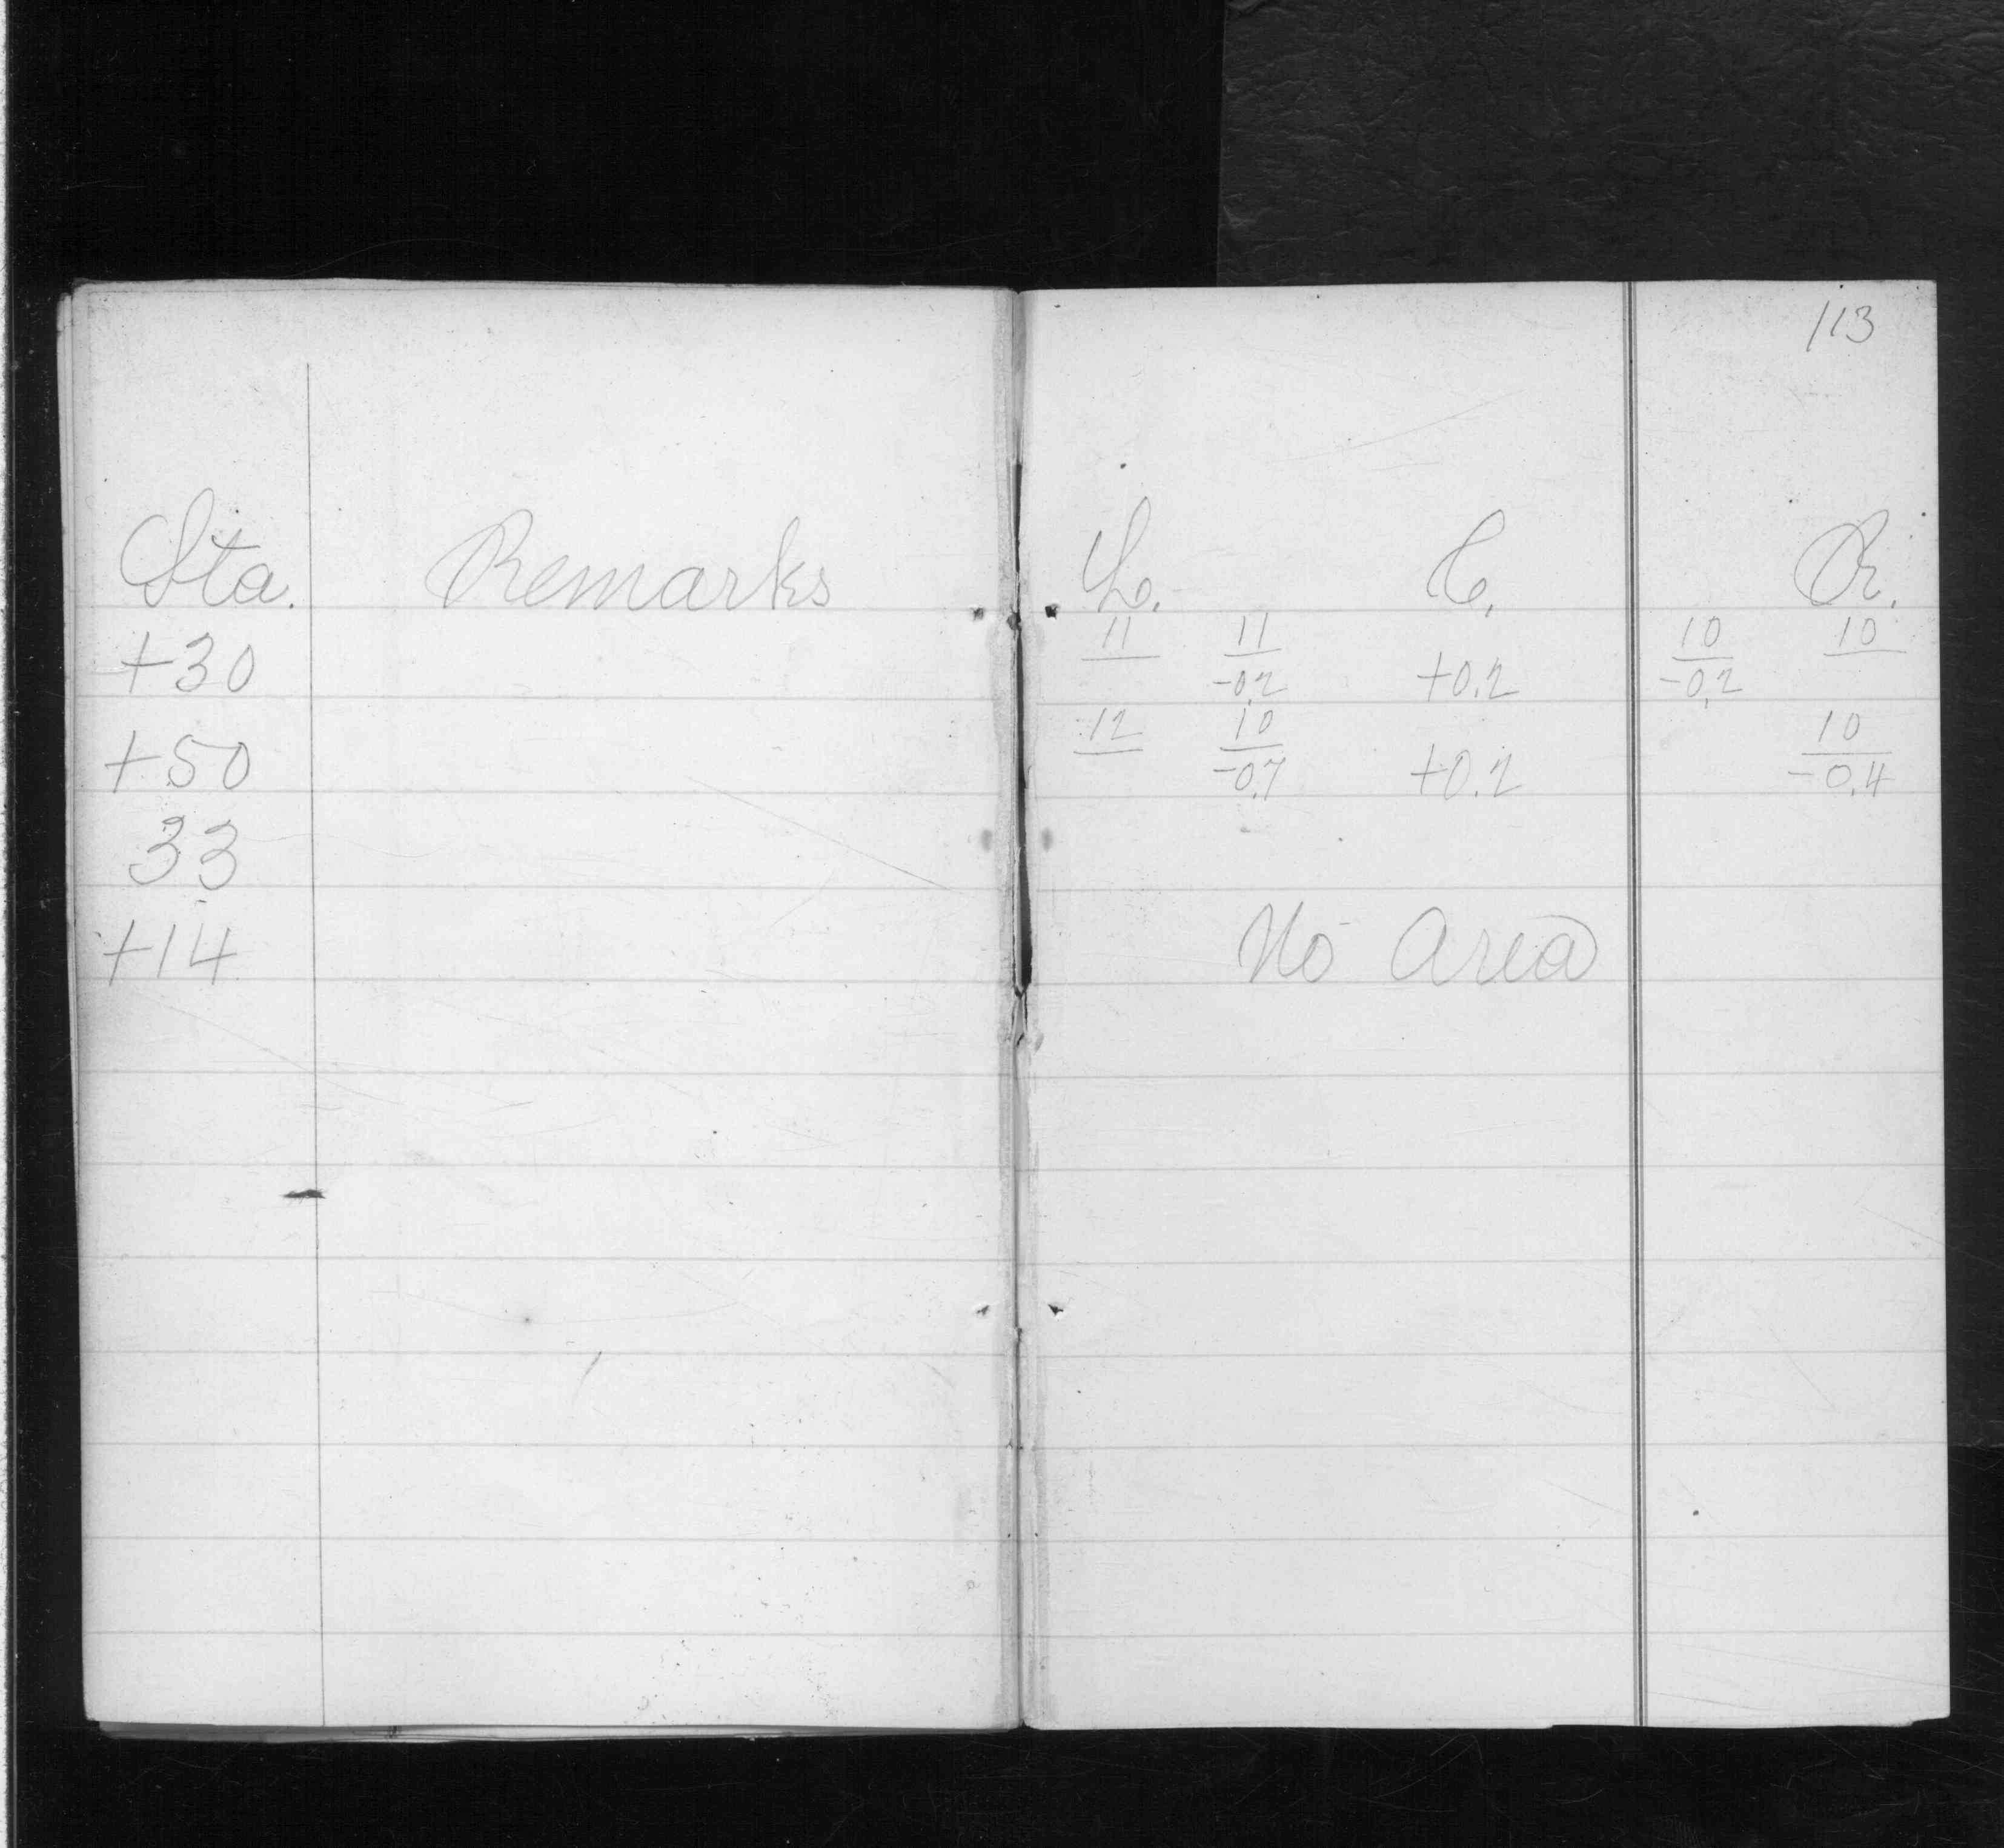 113
Sta. Remarks L. C. R.
+30 11 11/-0.2 +0.2 10/-0.2 10
+50 12 10/-0.7 +0.2 10/-0.4
33
+14 No Area